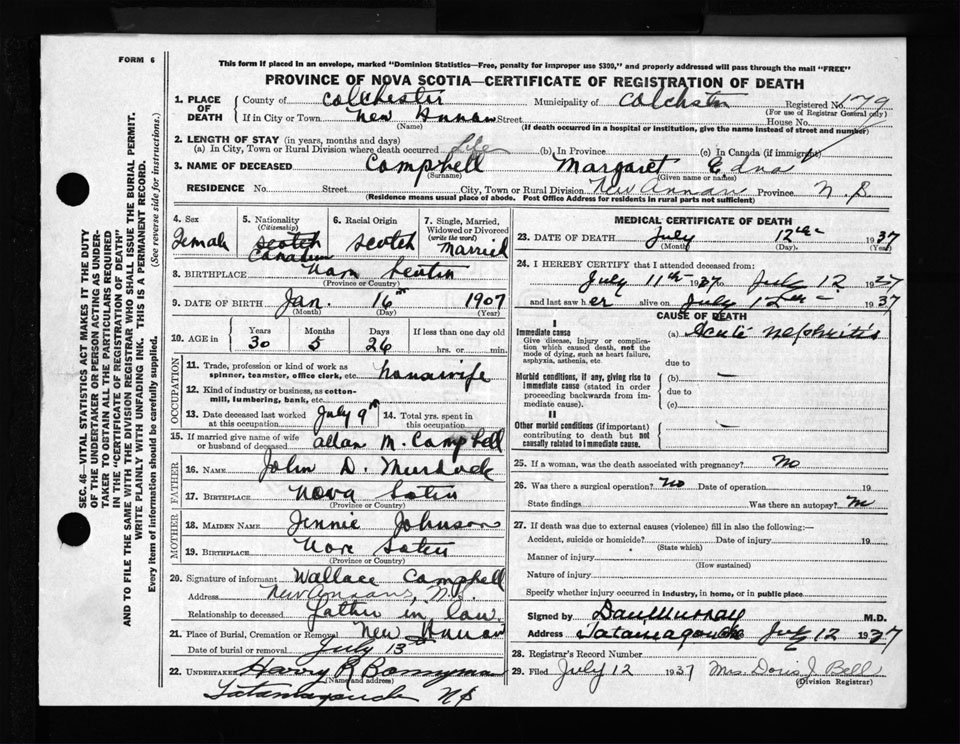 FORM 6
This form if placed in an envelope, marked "Dominion Statistics—Free, penalty for improper use $300," and properly addressed will pass through the mail "FREE"
PROVINCE OF NOVA SCOTIA—CERTIFICATE OF REGISTRATION OF DEATH
SEC. 46—VITAL STATISTICS ACT MAKES IT THE DUTY
OF THE UNDERTAKER OR PERSON ACTING AS UNDER-
TAKER TO OBTAIN ALL THE PARTICULARS REQUIRED
IN THE "CERTIFICATE OF REGISTRATION OF DEATH"
AND TO FILE THE SAME WITH THE DIVISION REGISTRAR WHO SHALL ISSUE THE BURIAL PERMIT.
WRITE PLAINLY WITH UNFADING INK. THIS IS A PERMANENT RECORD.
Every item of information should be carefully supplied. (See reverse side for instructions.)
1. PLACE OF DEATH
County of Colchester Municipality of Colchester Registered No. 179
(For use of Registrar General only)
If in City or Town New Annan Street House No.
(Name) (If death occurred in a hospital or institution, give the name instead of street and number)
2. LENGTH OF STAY (in years, months and days)
(a) In City, Town or Rural Division where death occurred Life (b) In Province (c) In Canada (if immigrant)
3. NAME OF DECEASED Campbell Margaret Edna
(Surname) (Given name or names)
RESIDENCE No. Street City, Town or Rural Division New Annan Province N.S
(Residence means usual place of abode. Post Office Address for residents in rural parts not sufficient)
4. Sex Female
5. Nationality (Citizenship) Scotch Canadian
6. Racial Origin Scotch
7. Single, Married, Widowed or Divorced (write the word) Married
8. BIRTHPLACE Nova Scotia
(Province or Country)
9. DATE OF BIRTH Jan. 16th 1907
(Month) (Day) (Year)
10. AGE in Years 30 Months 5 Days 26 If less than one day old hrs. or min.
OCCUPATION
11. Trade, profession or kind of work as spinner, teamster, office clerk, etc. housewife
12. Kind of industry or business, as cotton-mill, lumbering, bank, etc.
13. Date deceased last worked at this occupation July 9th 14. Total yrs. spent in this occupation
15. If married give name of wife or husband of deceased Allan M. Campbell
FATHER
16. NAME John D. Murdock
17. BIRTHPLACE Nova Scotia
(Province or Country)
MOTHER
18. MAIDEN NAME Jennie Johnson
19. BIRTHPLACE Nova Scotia
(Province or Country)
20. Signature of informant Wallace Campbell
Address New Annan, N.S.
Relationship to deceased father in law
21. Place of Burial, Cremation or Removal New Annan
Date of burial or removal July 13th
22. UNDERTAKER Harry R Bonnyman
(Name and address)
Tatamagouche NS
MEDICAL CERTIFICATE OF DEATH
23. DATE OF DEATH July 12th 1937
(Month) (Day) (Year)
24. I HEREBY CERTIFY that I attended deceased from:
July 11th 1937 to July 12 1937
and last saw her alive on July 12th 1937
CAUSE OF DEATH
I
Immediate cause (a) Acute Nephritis
Give disease, injury or complication which caused death, not the mode of dying, such as heart failure, asphyxia, asthenia, etc.
due to
Morbid conditions, if any, giving rise to immediate cause (stated in order proceeding backwards from immediate cause).
(b) —
due to
(c)
II
Other morbid conditions (if important) contributing to death but not causally related to immediate cause.
25. If a woman, was the death associated with pregnancy? No
26. Was there a surgical operation? No Date of operation 19
State findings Was there an autopsy? No
27. If death was due to external causes (violence) fill in also the following:—
Accident, suicide or homicide? Date of injury 19
(State which)
Manner of injury
(How sustained)
Nature of injury
Specify whether injury occurred in industry, in home, or in public place
Signed by Dan Murray M.D.
Address Tatamagouche July 12 1937
28. Registrar's Record Number
29. Filed July 12 1937 Mrs. Doris J. Bell
(Division Registrar)